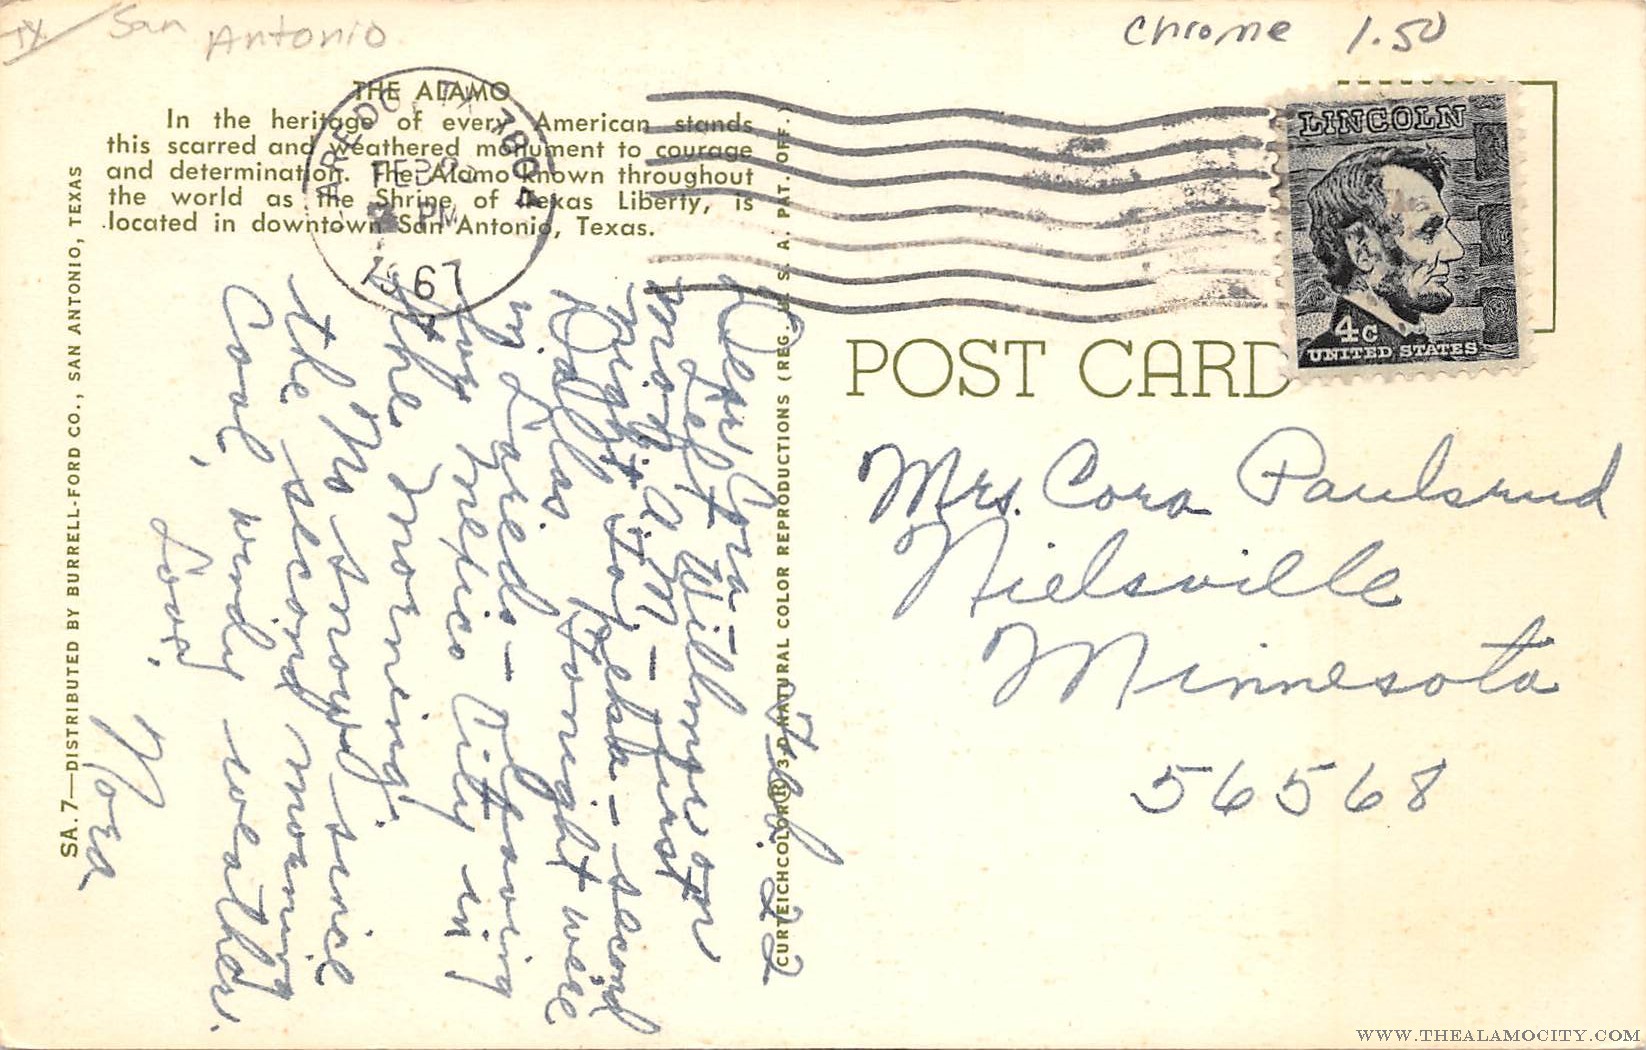 TX/San Antonio
Chrome 1.50
THE ALAMO
In the heritage of every American stands
this scarred and weathered monument to courage
and determination. The Alamo known throughout
the world as the Shrine of Texas Liberty, is
located in downtown San Antonio, Texas.
LAREDO, TX 780
FEB
PM
1967
LINCOLN
4c
UNITED STATES
POST CARD
SA.7—DISTRIBUTED BY BURRELL-FORD CO., SAN ANTONIO, TEXAS
CURTEICHCOLOR® 3-D NATURAL COLOR REPRODUCTIONS (REG. U. S. A. PAT. OFF.)
Feb. 22
Dear Cora
Left Willmar on
Mon. A.M. - First
night Topeka - second
Dallas. Tonight we're
in Laredo - Leaving
for Mexico City in
the morning.
No snow since
the second morning
Cool, windy weather.
Love,
Nora
Mrs. Cora Paulsrud
Nielsville
Minnesota
56568
WWW.THEALAMOCITY.COM